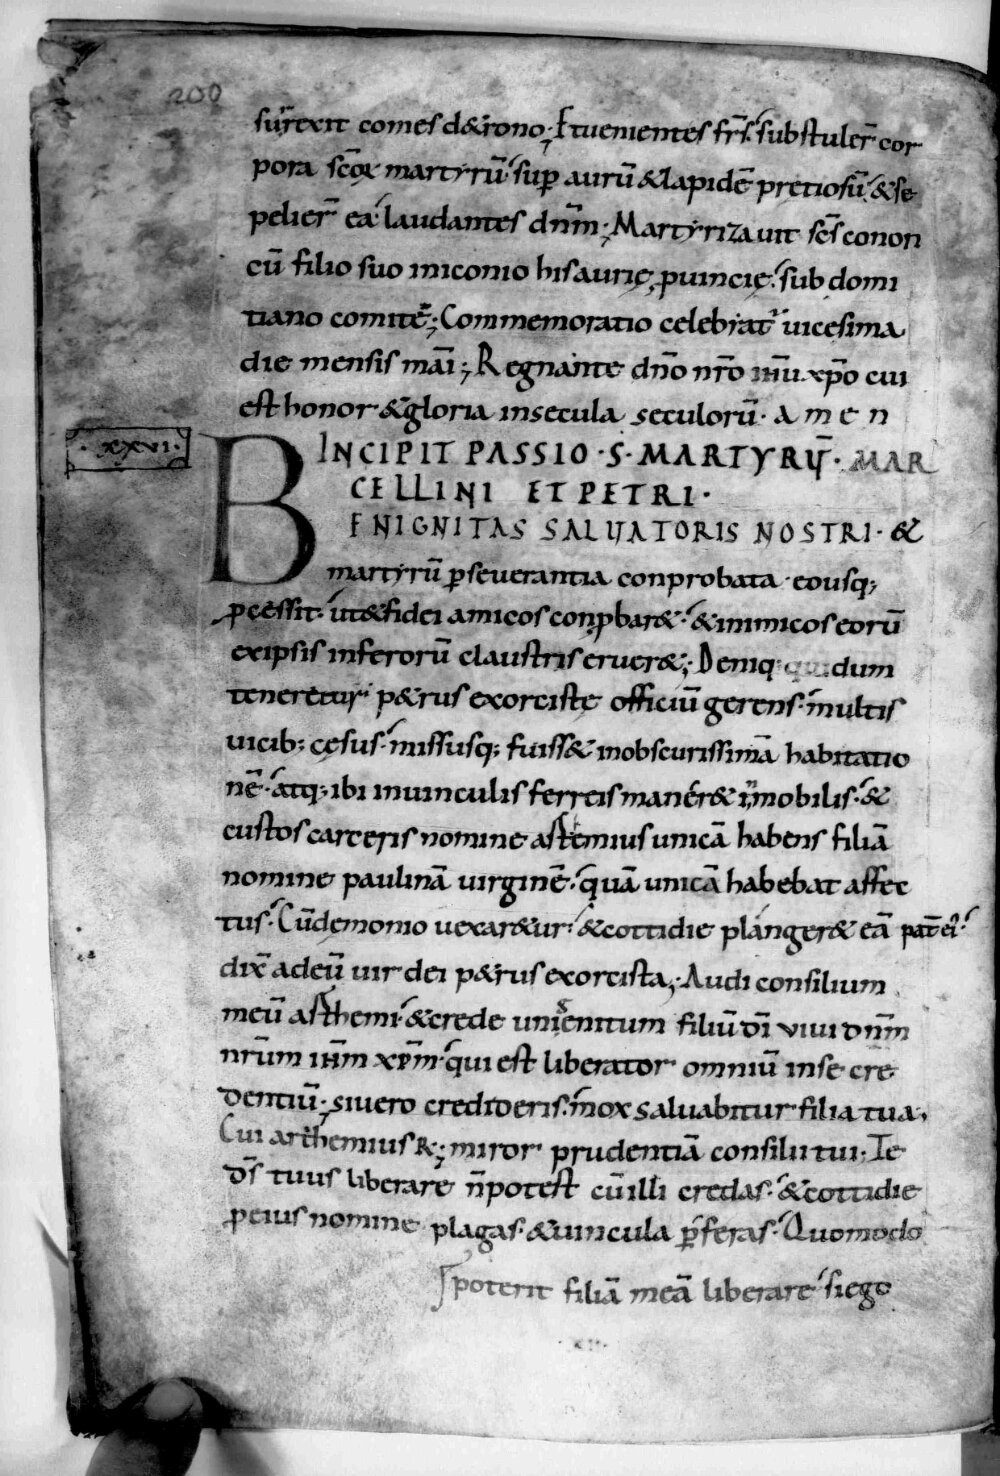 200
surrexit comes d&rono; Et uenientes fr̄s. substuler̄ cor
pora sc̄oꝝ martyrū sup̱ aurū & lapidē pretiosū. & se
pelier̄ ea laudantes dn̄m; Martyrizauit sc̄s conon
cū filio suo in iconio hisaurię ꝓuincię. sub domi
tiano comite; Commemoratio celebrat᷑ uicesima
die mensis mai; Regnante dn̄o nr̄o ih̄u xp̄o cui
est honor & gloria in secula seculorū. a m e n
. xxvi .
INCIPIT PASSIO . S . MARTYRṼ . MAR
CELLINI ET PETRI .
BENIGNITAS SALUATORIS NOSTRI . &
martyrū ꝑseuerantia conprobata eousq;
ꝓcessit. ut & fidei amicos conꝓbar&. & inimicos eorū
ex ipsis inferorū claustris eruer&; Deniq; dum
teneretur p&rus exorcistę officiū gerens. multis
uicib; cęsus. missusq; fuiss& in obscurissimā habitatio
nē. atq; ibi in uinculis ferreis maner& immobilis. &
custos carceris nomine astemius unicā habens filiā
nomine paulinā uirginē. quā unicā habebat affec
tus. Cū demonio uexar&ur. & cottidie planger& eā pat̄ ei.
dix̄ ad eū uir dei p&rus exorcista; Audi consilium
meū asthemi. & crede unigenitum filiū dī vivi dn̄m
nr̄um ih̄m xp̄m. qui est liberator omniū in se cre
dentiū; si uero credideris. mox saluabitur filia tua.
Cui arthemius R; miror prudentiā consilii tui. Te
ds̄ tuus liberare n̄ potest cū illi credas. & cottidie
ꝓ eius nomine plagas. & uincula ꝑferas. Quomodo
poterit filiā meā liberare si ego